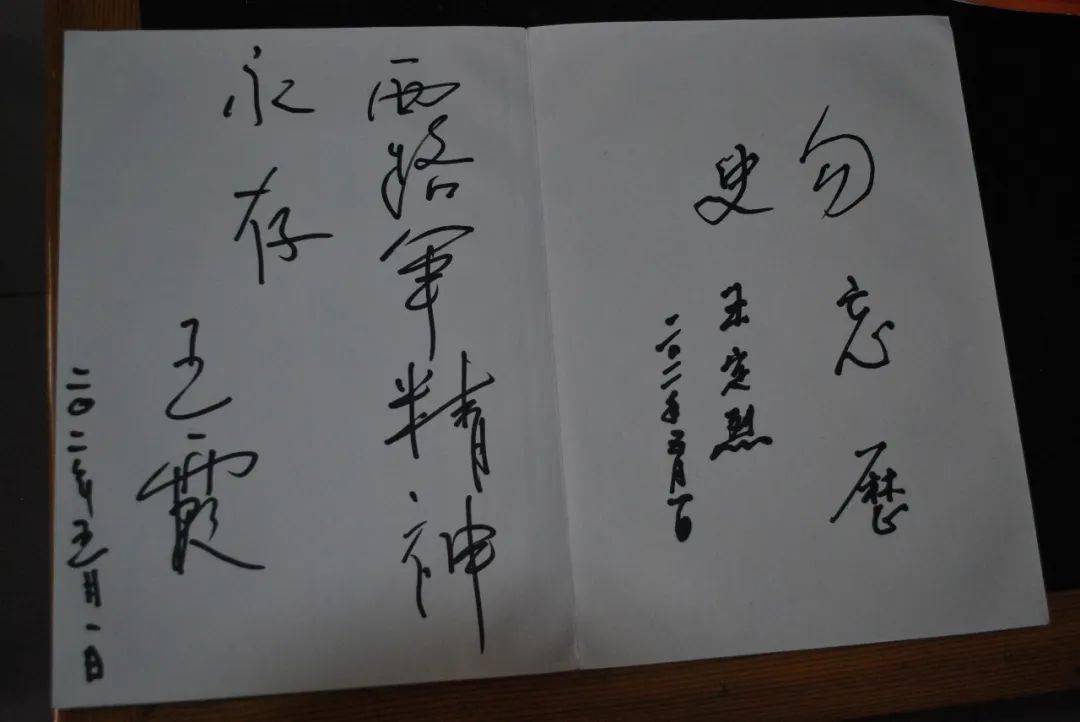 勿忘歷
史
王定烈
二〇一二年五月一日
西路军精神
永存
王霞
二〇一二年五月一日